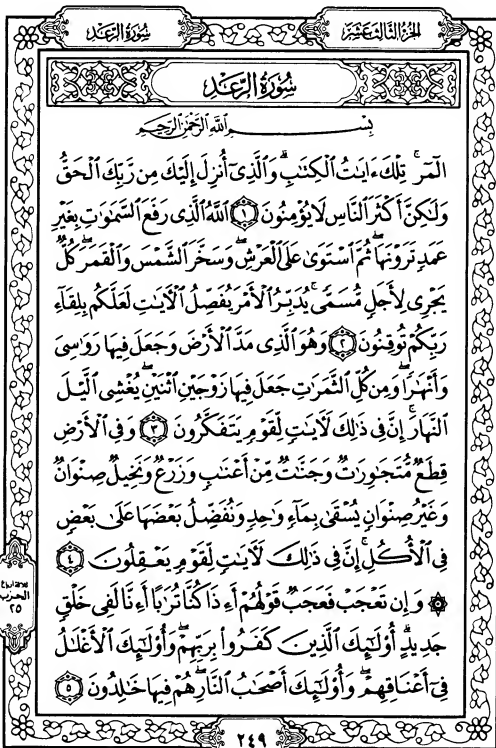 الجزء الثالث عشر
سورة الرعد
سُورَةُ الرَّعْدِ
بِسْمِ اللَّهِ الرَّحْمَٰنِ الرَّحِيمِ
الٓمٓر ۚ تِلْكَ ءَايَٰتُ ٱلْكِتَٰبِ ۗ وَٱلَّذِىٓ أُنزِلَ إِلَيْكَ مِن رَّبِّكَ ٱلْحَقُّ
وَلَٰكِنَّ أَكْثَرَ ٱلنَّاسِ لَا يُؤْمِنُونَ ١ ٱللَّهُ ٱلَّذِى رَفَعَ ٱلسَّمَٰوَٰتِ بِغَيْرِ
عَمَدٍ تَرَوْنَهَا ۖ ثُمَّ ٱسْتَوَىٰ عَلَى ٱلْعَرْشِ ۖ وَسَخَّرَ ٱلشَّمْسَ وَٱلْقَمَرَ ۖ كُلٌّ
يَجْرِى لِأَجَلٍ مُّسَمًّى ۚ يُدَبِّرُ ٱلْأَمْرَ يُفَصِّلُ ٱلْءَايَٰتِ لَعَلَّكُم بِلِقَآءِ
رَبِّكُمْ تُوقِنُونَ ٢ وَهُوَ ٱلَّذِى مَدَّ ٱلْأَرْضَ وَجَعَلَ فِيهَا رَوَٰسِىَ
وَأَنْهَٰرًا ۖ وَمِن كُلِّ ٱلثَّمَرَٰتِ جَعَلَ فِيهَا زَوْجَيْنِ ٱثْنَيْنِ ۖ يُغْشِى ٱلَّيْلَ
ٱلنَّهَارَ ۚ إِنَّ فِى ذَٰلِكَ لَءَايَٰتٍ لِّقَوْمٍ يَتَفَكَّرُونَ ٣ وَفِى ٱلْأَرْضِ
قِطَعٌ مُّتَجَٰوِرَٰتٌ وَجَنَّٰتٌ مِّنْ أَعْنَٰبٍ وَزَرْعٌ وَنَخِيلٌ صِنْوَانٌ
وَغَيْرُ صِنْوَانٍ يُسْقَىٰ بِمَآءٍ وَٰحِدٍ وَنُفَضِّلُ بَعْضَهَا عَلَىٰ بَعْضٍ
فِى ٱلْأُكُلِ ۚ إِنَّ فِى ذَٰلِكَ لَءَايَٰتٍ لِّقَوْمٍ يَعْقِلُونَ ٤
۞ وَإِن تَعْجَبْ فَعَجَبٌ قَوْلُهُمْ أَءِذَا كُنَّا تُرَٰبًا أَءِنَّا لَفِى خَلْقٍ
جَدِيدٍ ۗ أُو۟لَٰٓئِكَ ٱلَّذِينَ كَفَرُوا۟ بِرَبِّهِمْ ۖ وَأُو۟لَٰٓئِكَ ٱلْأَغْلَٰلُ
فِىٓ أَعْنَاقِهِمْ ۖ وَأُو۟لَٰٓئِكَ أَصْحَٰبُ ٱلنَّارِ ۖ هُمْ فِيهَا خَٰلِدُونَ ٥
ثلاثة أرباع
الحزب
٢٥
٢٤٩